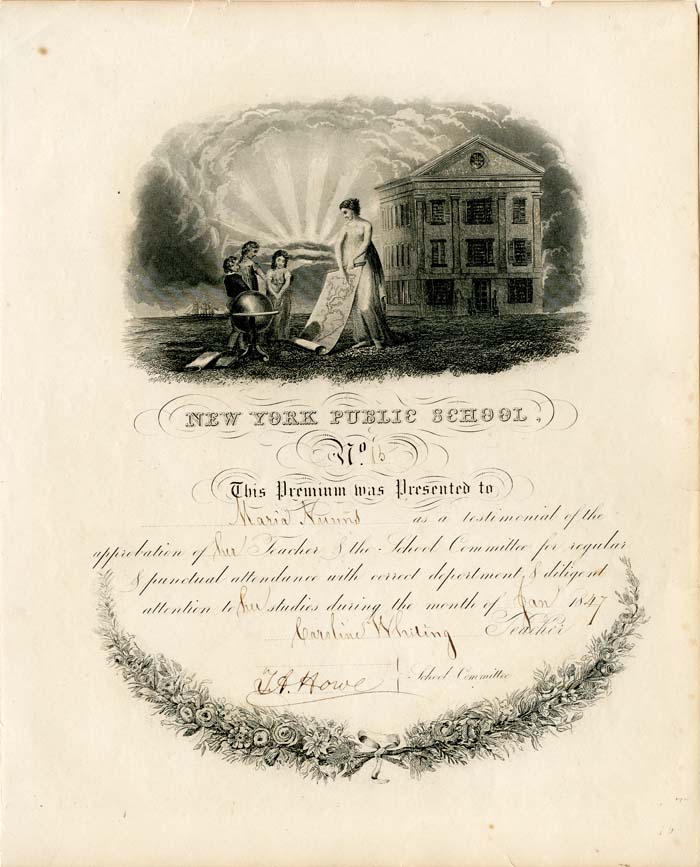 NEW YORK PUBLIC SCHOOL,
No 15
This Premium was Presented to
Maria Nunns as a testimonial of the
approbation of her Teacher & the School Committee for regular
& punctual attendance with correct deportment & diligent
attention to her studies during the month of Jan 1847
Caroline Whiting Teacher
J.A. Howe School Committee